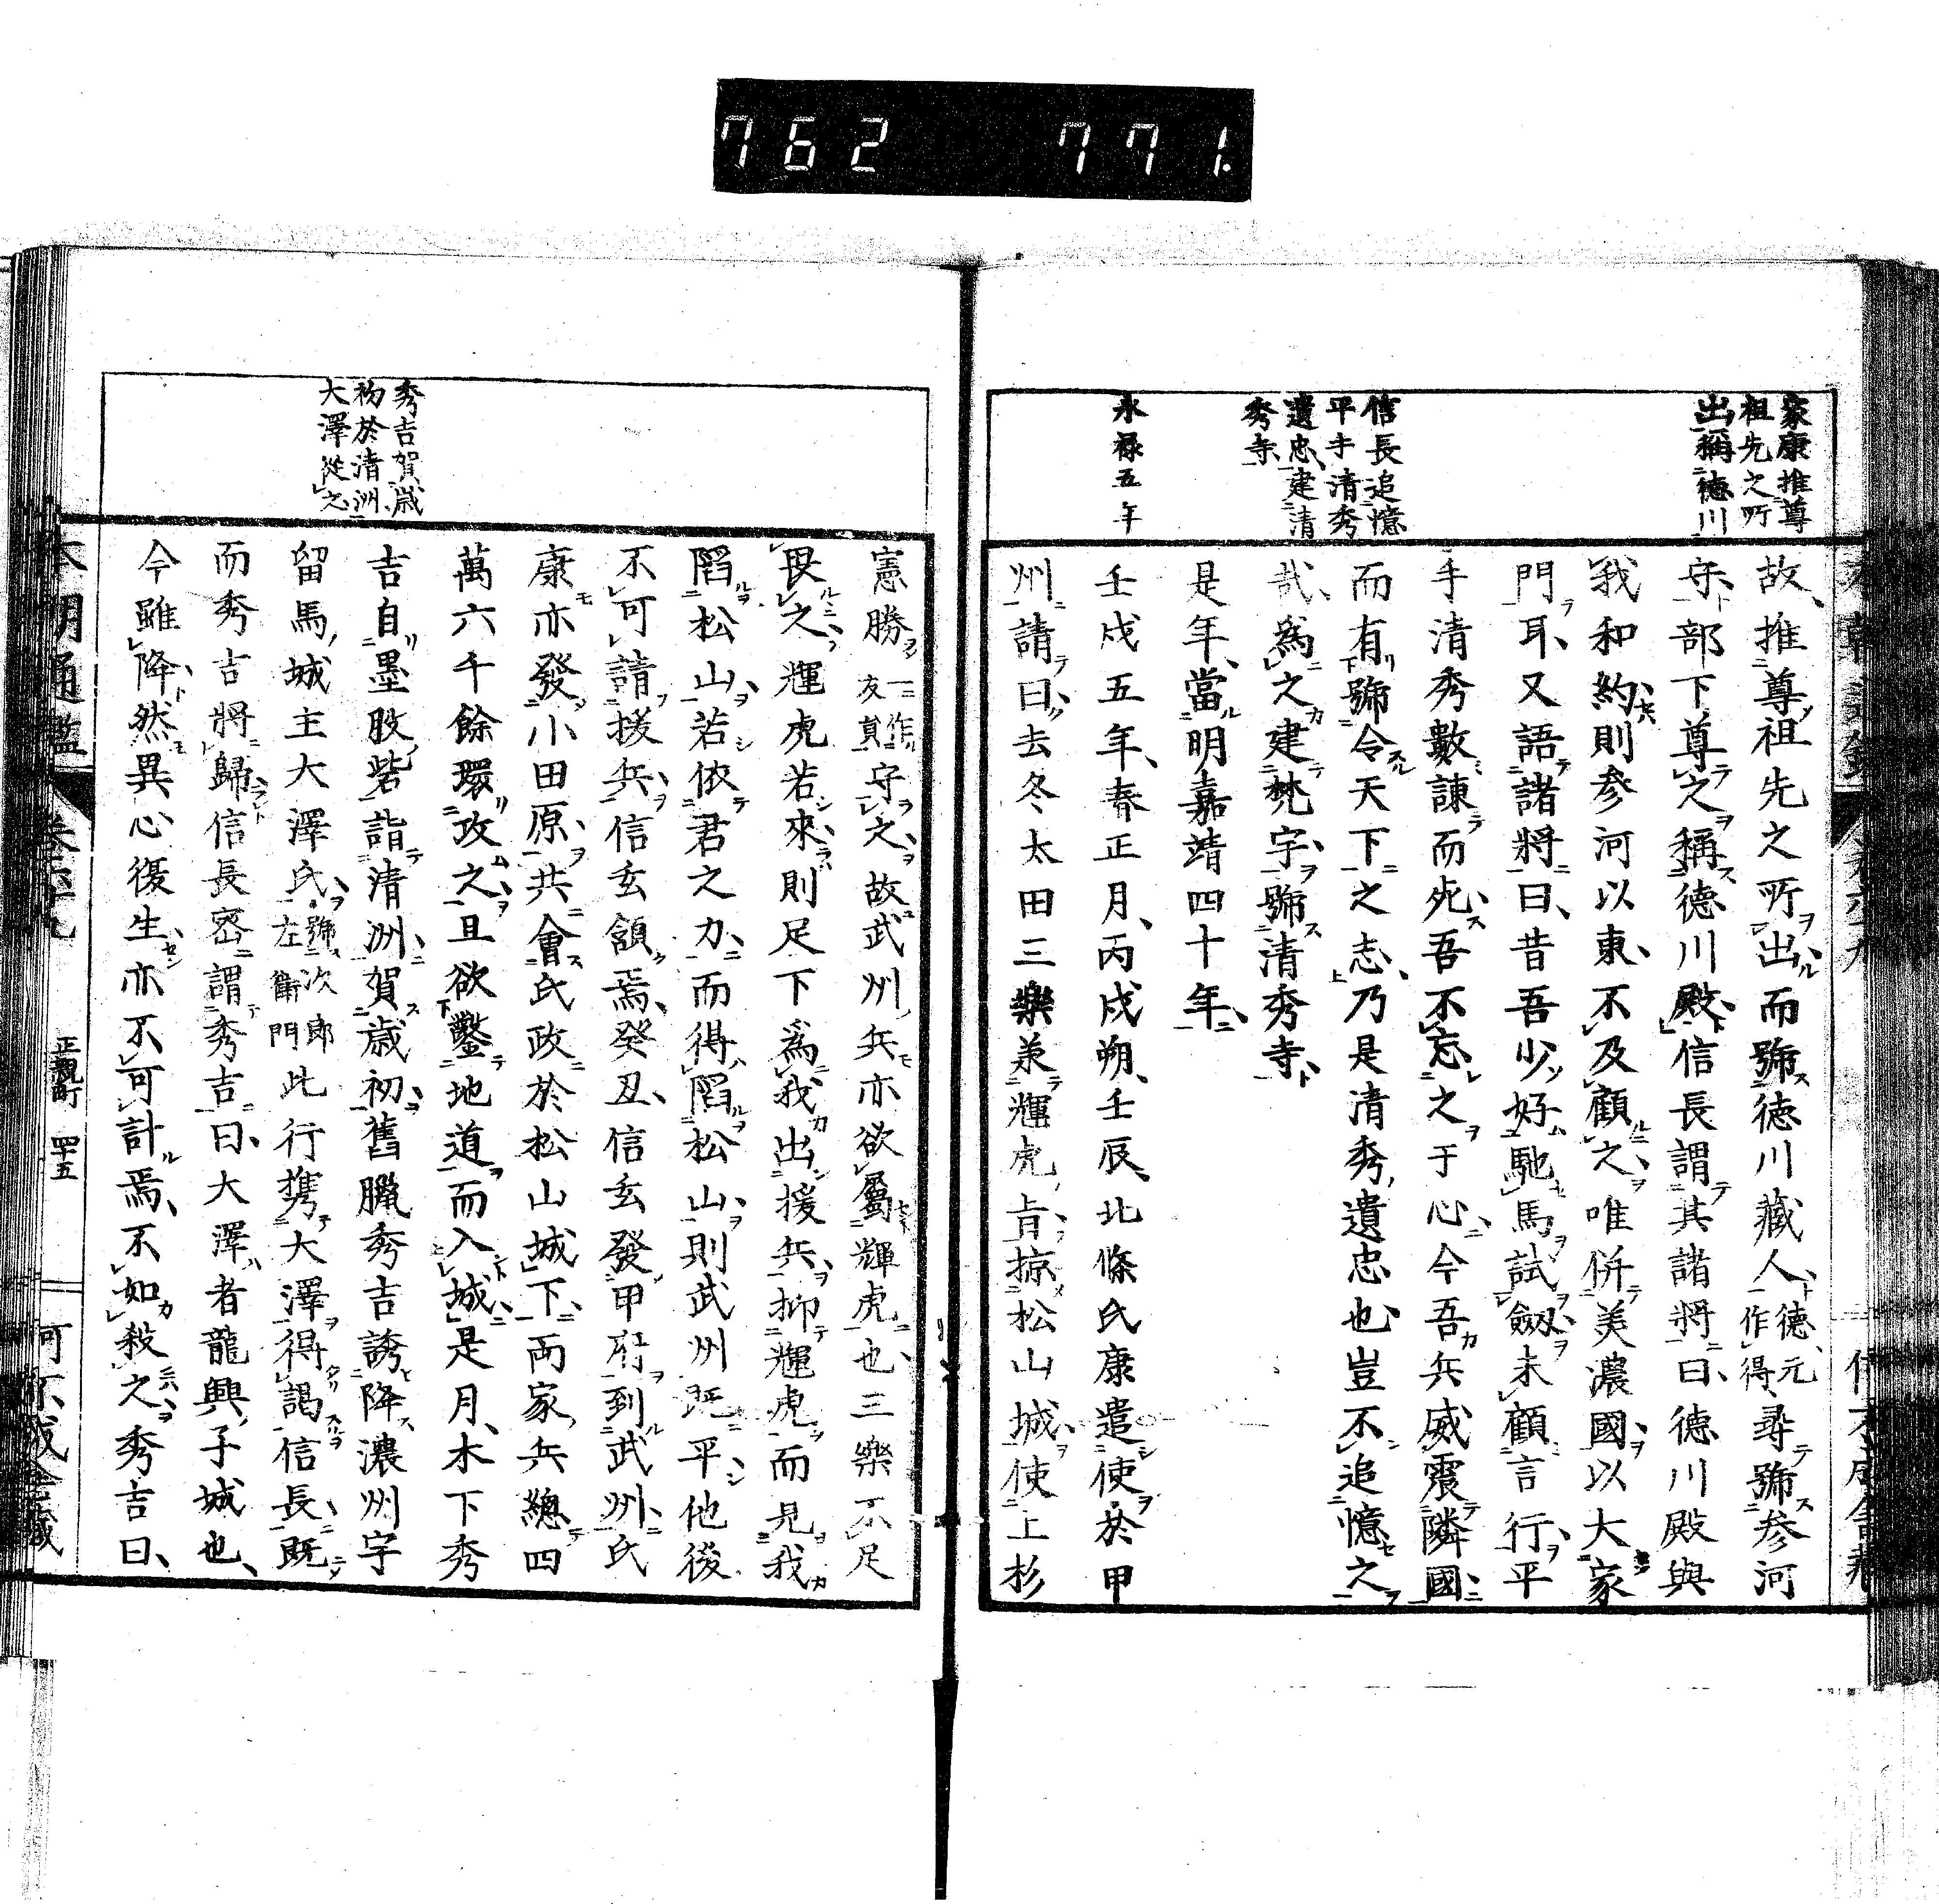 762 771.
家康推尊
祖先之所
出稱德川
信長追憶
平手清秀
遺忠建清
秀寺
永禄五年
故推尊祖先之所出而號德川藏人德元一作得尋號参河
守部下尊之稱德川殿信長謂其諸將曰德川殿與
我和約則参河以東不及顧之唯併美濃國以大家
門耳又語諸將曰昔吾少好馳馬試劔未顧言行平
手清秀數諫而死吾不忘之于心今吾兵威震隣國
而有號令天下之志乃是清秀遺忠也豈不追憶之
哉為之建梵宇號清秀寺
是年當明嘉靖四十年
壬戌五年春正月丙戌朔壬辰北條氏康遣使於甲
州請曰去冬太田三樂兼輝虎旨掠松山城使上杉
秀吉賀歳
初於清洲
大澤從之
憲勝一作友貞守之故武州兵亦欲屬輝虎也三樂不足
畏之輝虎若來則足下為我出援兵抑輝虎而見我
陷松山若依君之力而得陷松山則武州既平他後
不可請援兵信玄領焉癸丑信玄發甲府到武州氏
康亦發小田原共會氏政於松山城下兩家兵總四
萬六千餘環攻之且欲鑿地道而入城是月木下秀
吉自墨股砦詣清洲賀歳初舊臘秀吉誘降濃州宇
留馬城主大澤氏號次郎左衞門此行携大澤得謁信長既
而秀吉將歸信長密謂秀吉曰大澤者龍興子城也
今雖降然異心復生亦不可計焉不如殺之秀吉曰
本朝通鑑 正親町 四十五